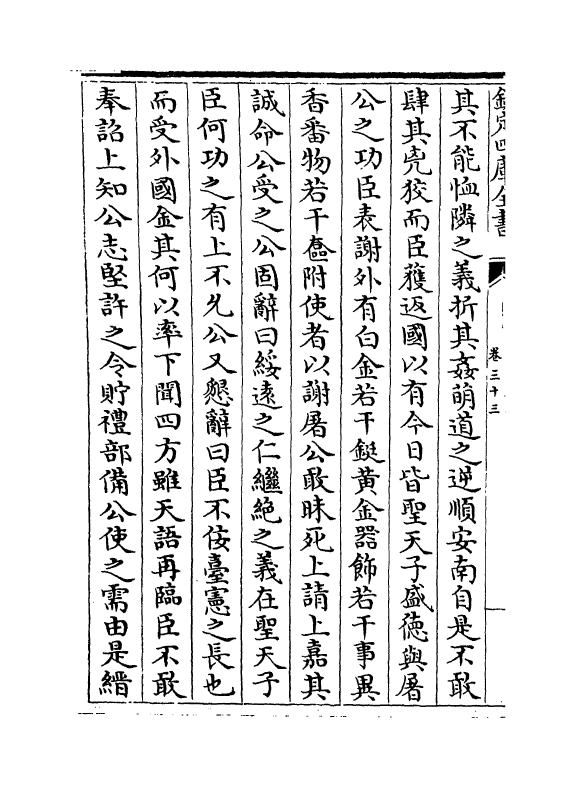 欽定四庫全書
卷三十三
其不能恤隣之義折其姦萌道之逆順安南自是不敢
肆其兇狡而臣獲返國以有今日皆聖天子盛徳與屠
公之功臣表謝外有白金若干鋌黄金器飾若干事異
香畨物若干㔶附使者以謝屠公敢昧死上請上嘉其
誠命公受之公固辭曰綏逺之仁繼絶之義在聖天子
臣何功之有上不允公又懇辭曰臣不佞臺憲之長也
而受外國金其何以率下聞四方雖天語再臨臣不敢
奉詔上知公志堅許之令貯禮部備公使之需由是縉